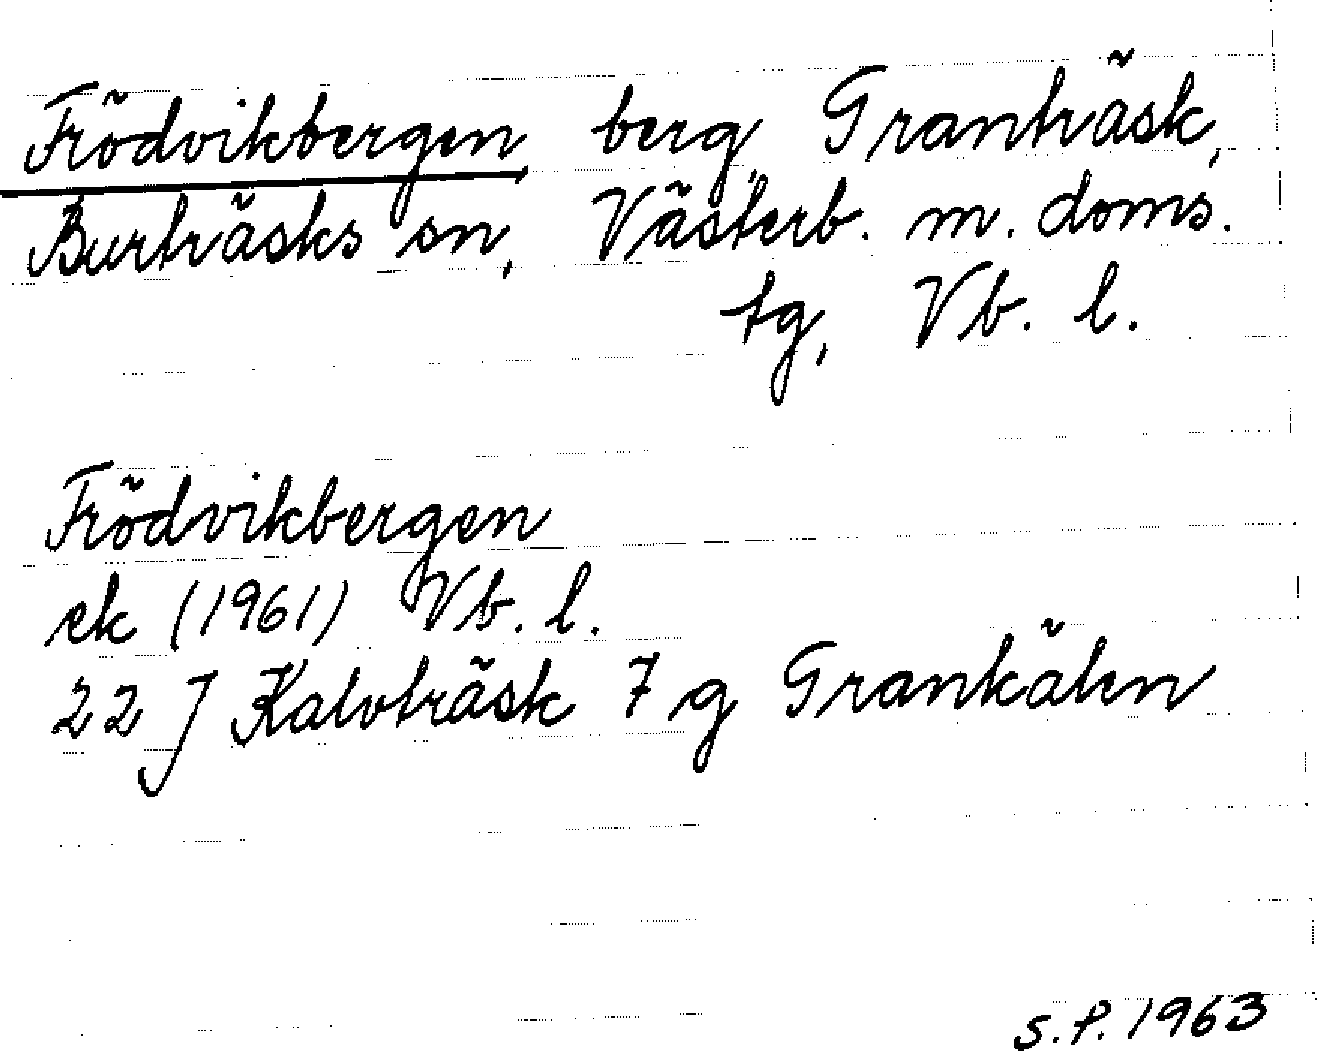 Frödvikbergen, berg, Granträsk,
Burträsks sn, Västerb. m. doms.
tg, Vb. l.
Frödvikbergen
ek (1961) Vb. l.
22 J Kalvträsk 7 g Grankälen
S.P. 1963